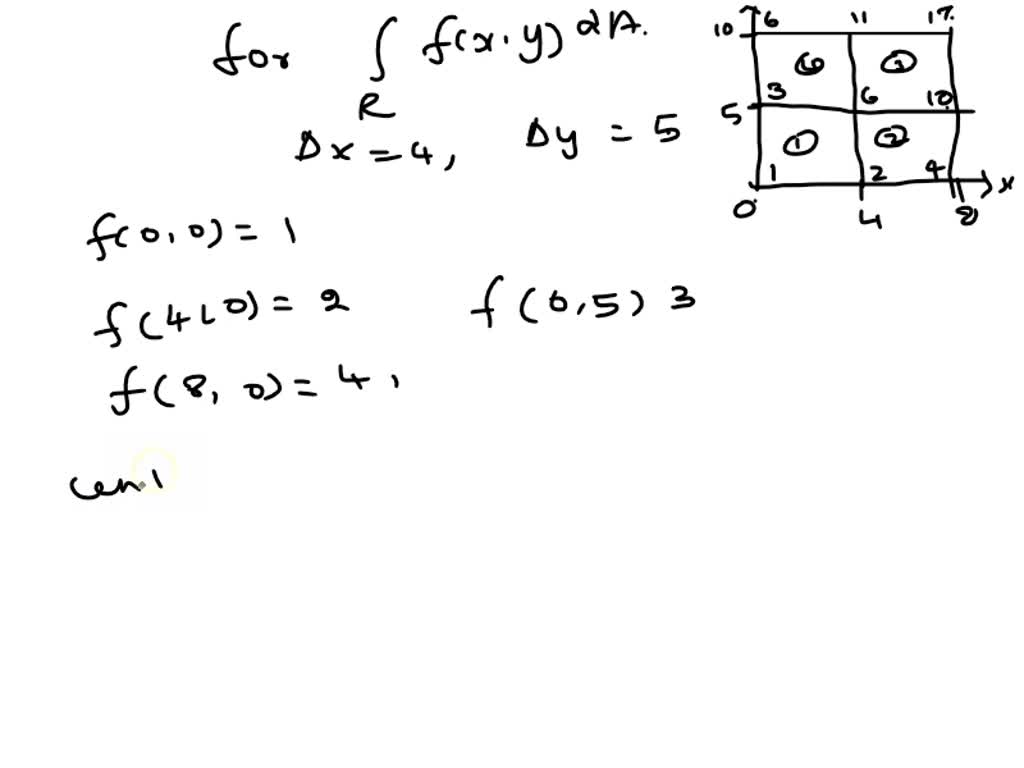 for ∫ f(x.y) dA.
R
Δx = 4, Δy = 5
10 6 11 17
④ ③
5 3 6 10
① ②
1 2 4 x
0 4 8
f(0,0) = 1
f(4,0) = 2 f(0,5) 3
f(8,0) = 4,